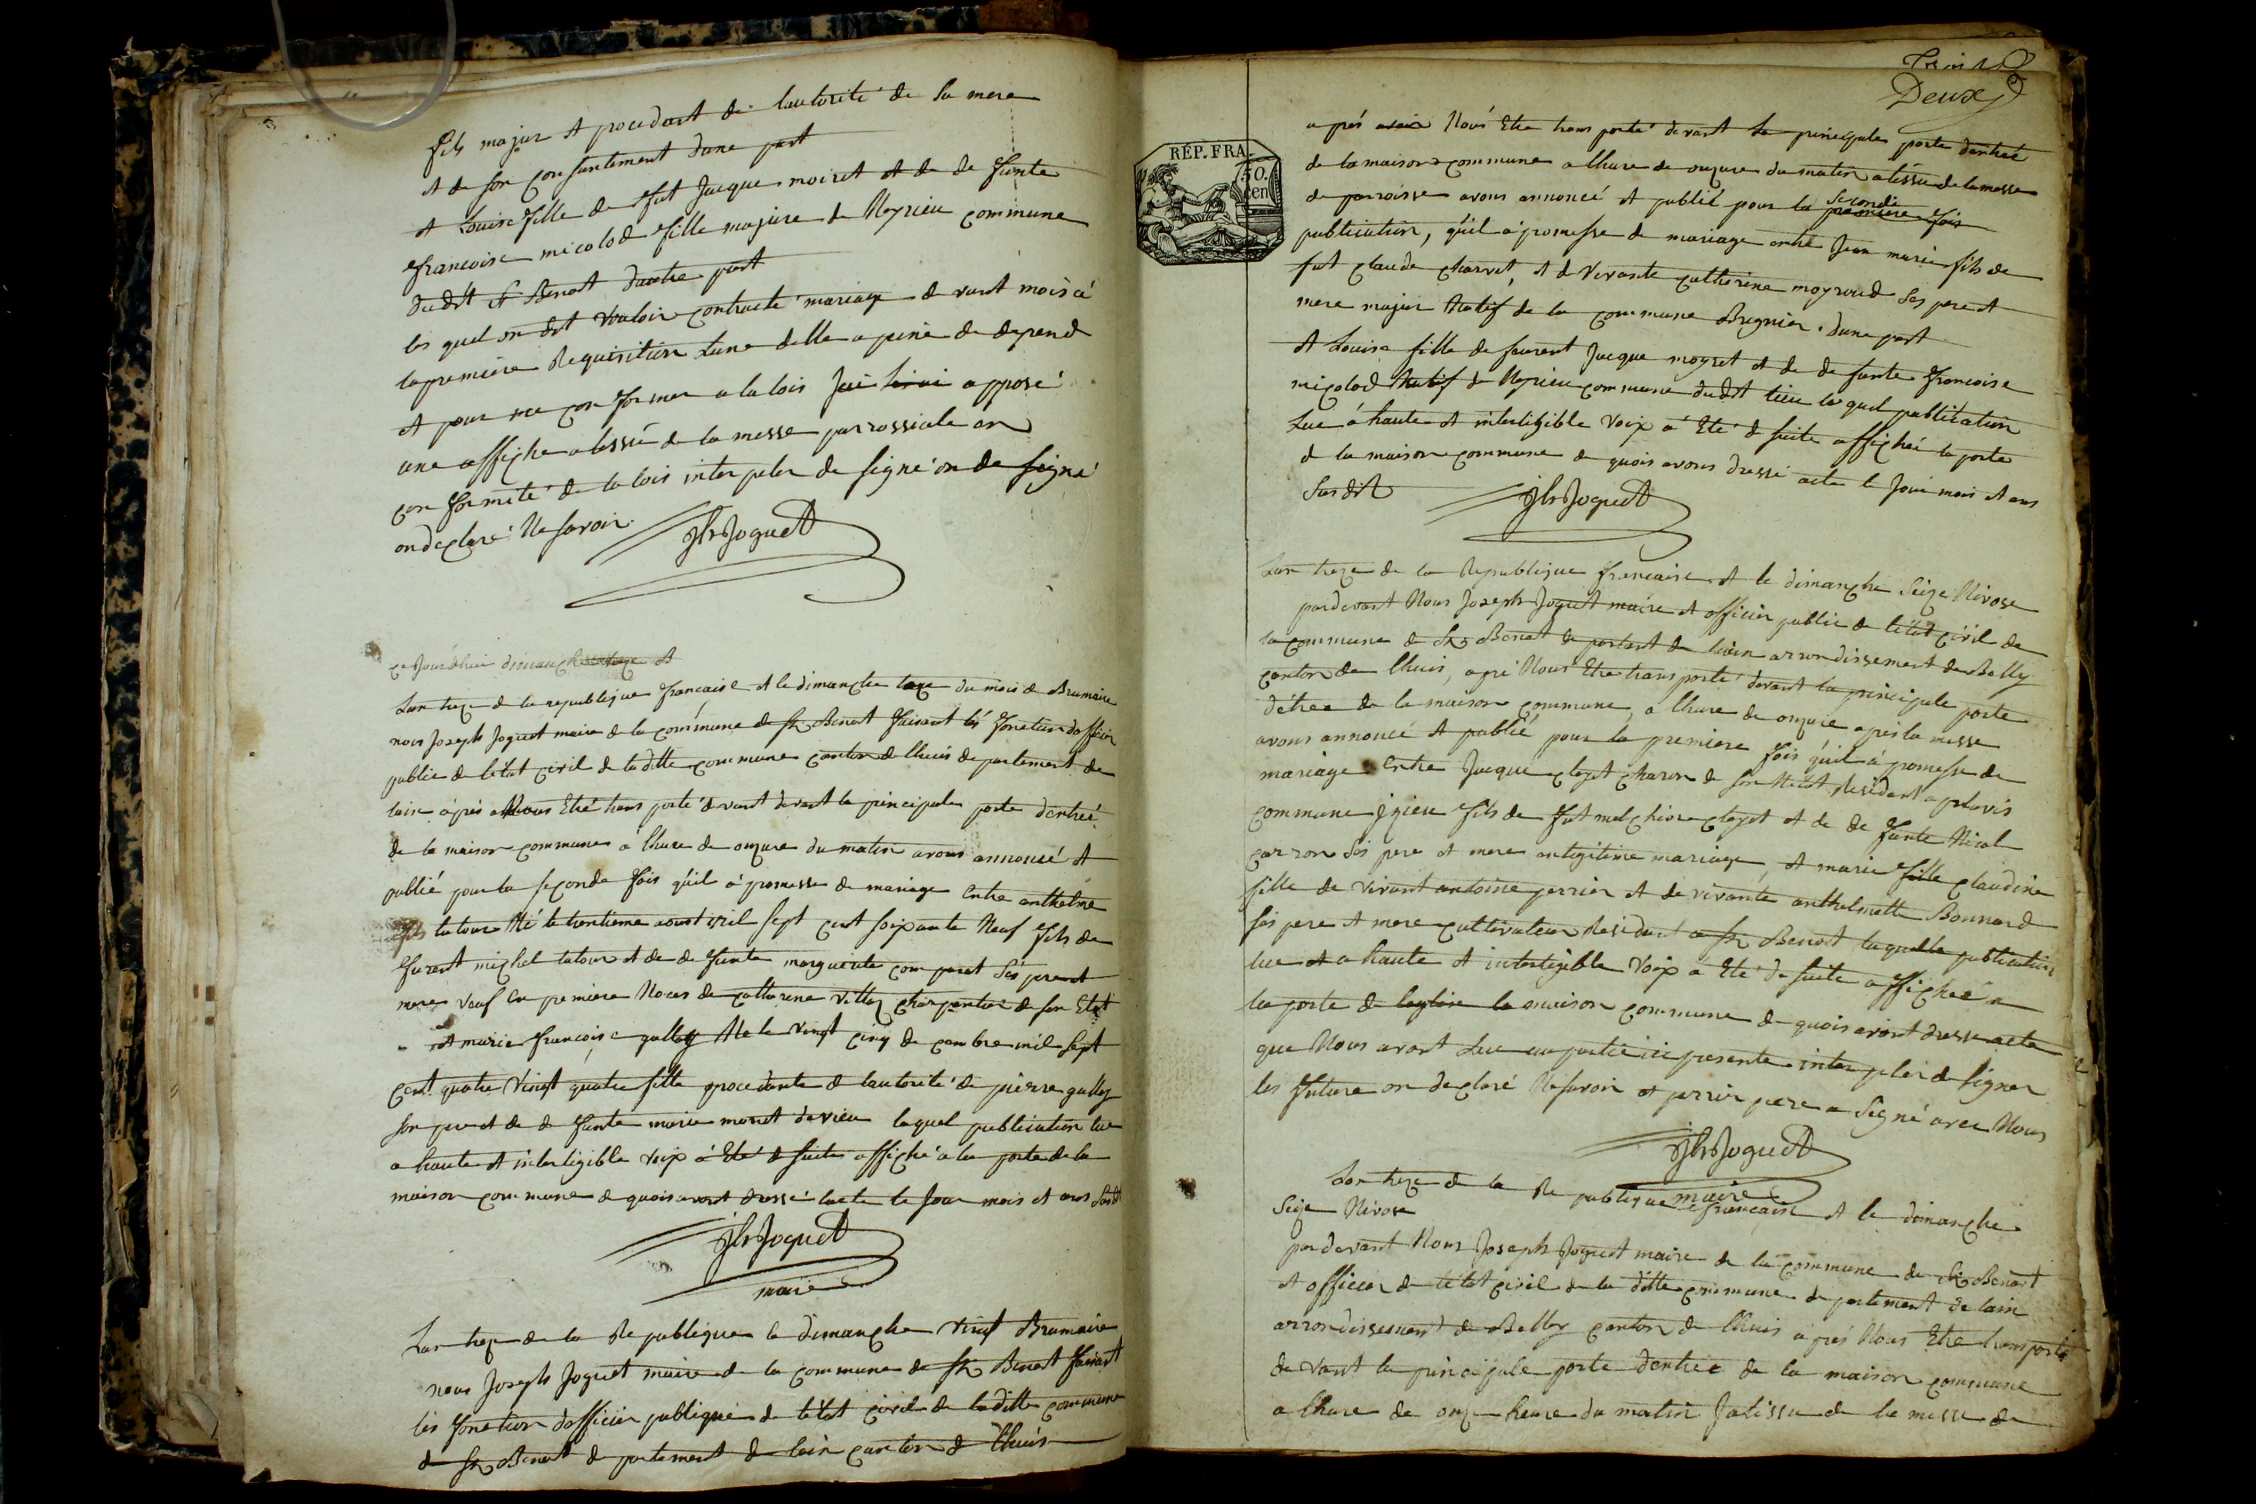 fils majur et procedant de lautorité de sa mere
et de son consantement dune part
et Louise fille de fut Jacque moiret et de de funte
francoise micolod fille majure de Neyrieu commune
dudit St Benoit dautre part
les quel on dit vouloir contracté mariage de vant mois cé
la premiere Requisition lune delle a peine de depend
et pour me conformer a la lois Jai apposé
une affiche a lissue de la messe parrossiale en
conformité de la lois interpeler de signé on de signé
on declaré Ne savoir
Jh Joquet
ce Jourdhui dimanche
Lan treze de la republique française et le dimanche du mois de Brumaire
nous Joseph Joquet maire de la commune de St Benoit faisant les fonction dofficier
public de létat civil de laditte commune canton de lhuis departement de
lain après Nous Etré trans porté devant devant la principale porte dentreé
de la maison commune a lhure de onzure du matin avons annoncé et
publié pour la seconde fois quil a promesse de mariage Entre anthelme
latour Né le trentieme aout mil sept cent soixante Neuf fils de
furent michel latour et de de funte marguerite comparet Sés pere et
mere veuf En premiere Noces de catterine charpentier de son Etat
et marie francoise gallay Né le vingt cinq de cembre mil sept
cent quatre vingt quatre fille procedante de lautorité de pierre gallay
son pere et de de funte marie moret davieu laquel publication lue
a haute et intertigible voix a Eté de suite affiché a la porte de la
maison commune de quois avont dressé lacte le Jour mois et ans
Jh Joquet
maire
Lan treze de la Republique le dimanche vinst Brumaire
nous Joseph Joquet maire de la commune de St Benoit faisant
les fonction dofficier publique de létat civil de laditte commune
de St Benoit de partement de lain canton de lhuis
Deux
RÉP. FRA.
50.
cen
a près Nous Etre trans porté devant la principale porte dentreé
de la maison commune a lhure de onzure du matin a lissu de la messe
de parroisse avons annoncé et publié pour la seconde fois
publication, quil a promesse de mariage entre Jean marie fils de
fut claude charvet, et de vivante catherine moyroud Ses pere et
mere majur Natif de la commune Bregnier dune part
et Louise fille de feurent Jacque moyret et de de funte francoise
micolod Natif de Neyrieu commune dudit lieu la quel publication
Lue a haute et intertigible voix a Eté de suite affiché la porte
de la maison commune de quois avons dressé acte le Jour mois et ans
Susdit
Jh Joquet
Lan treze de la Republique francaise et le dimanche Seize Nivose
pardevant Nous Joseph Joquet maire et officier public de létat civil de
la commune de St Benoit de partement de lain arrondissement de Belley
canton de lhuis, apré Nous Etre transporté devant la principale porte
détreé de la maison commune, a lhure de onzure après la messe
avons annoncé et publié pour la premiere fois quil a promesse de
mariage Entre Jacque cloyet charon de son Métot, Résidant a
commune Izieu fils de fut melchior cloyet et de de funte Nicol
carron Sés pere et mere enlegitime mariage, et marie fille claudine
fille de vivant antoine perrier et de vivante anthelmette Bonnard
Sés pere et mere cultivateur Residant a St Benoit laquelle publication
lue et a haute et intertigible voix a Eté de suite affichée a
la porte de leglise la maison commune de quois avont dresse acte
que Nous avont Lue au partie ici presente interpeler de signer
les future on declaré Ne savoir et perrier pere a Signé avec Nous
Jh Joquet
maire
Lan treze de la Republique francaise et le dimanche
Seize Nivose
pardevant Nous Joseph Joquet maire de la commune de St Benoit
et officier de létat civil de la ditte commune de partement de lain
arrondissement de Belley canton de lhuis après Nous Etre transporté
de vant la principale porte dentreé de la maison commune
a lhure de onze heure du matin Jalissu de la messe de